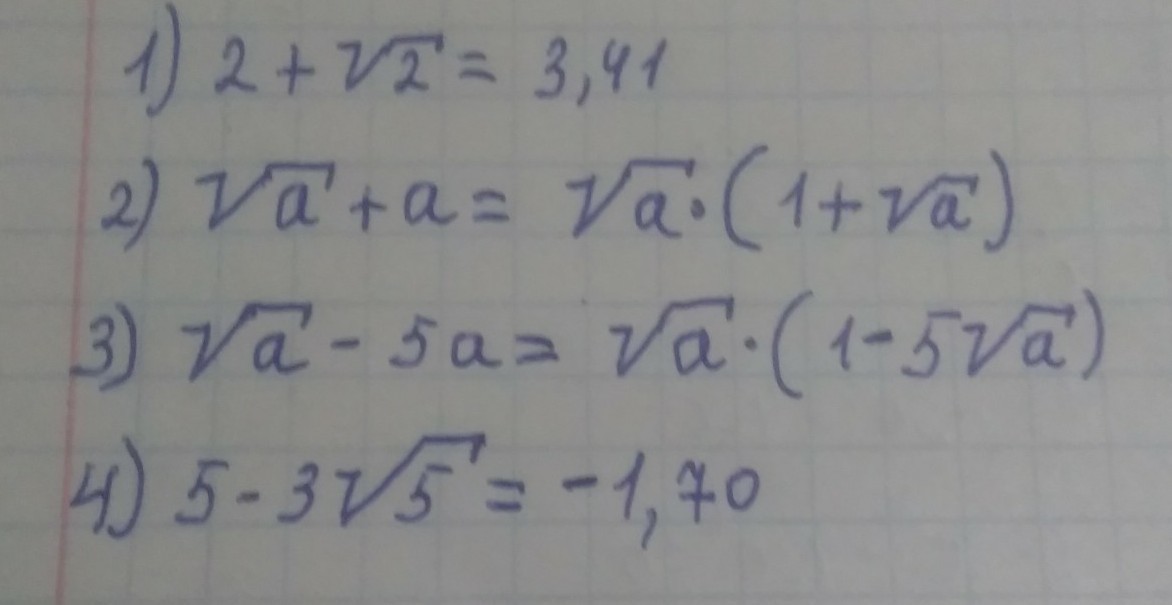 1) 2 + √2 = 3,41
2) √a + a = √a · (1 + √a)
3) √a - 5a = √a · (1 - 5√a)
4) 5 - 3√5 = -1,70